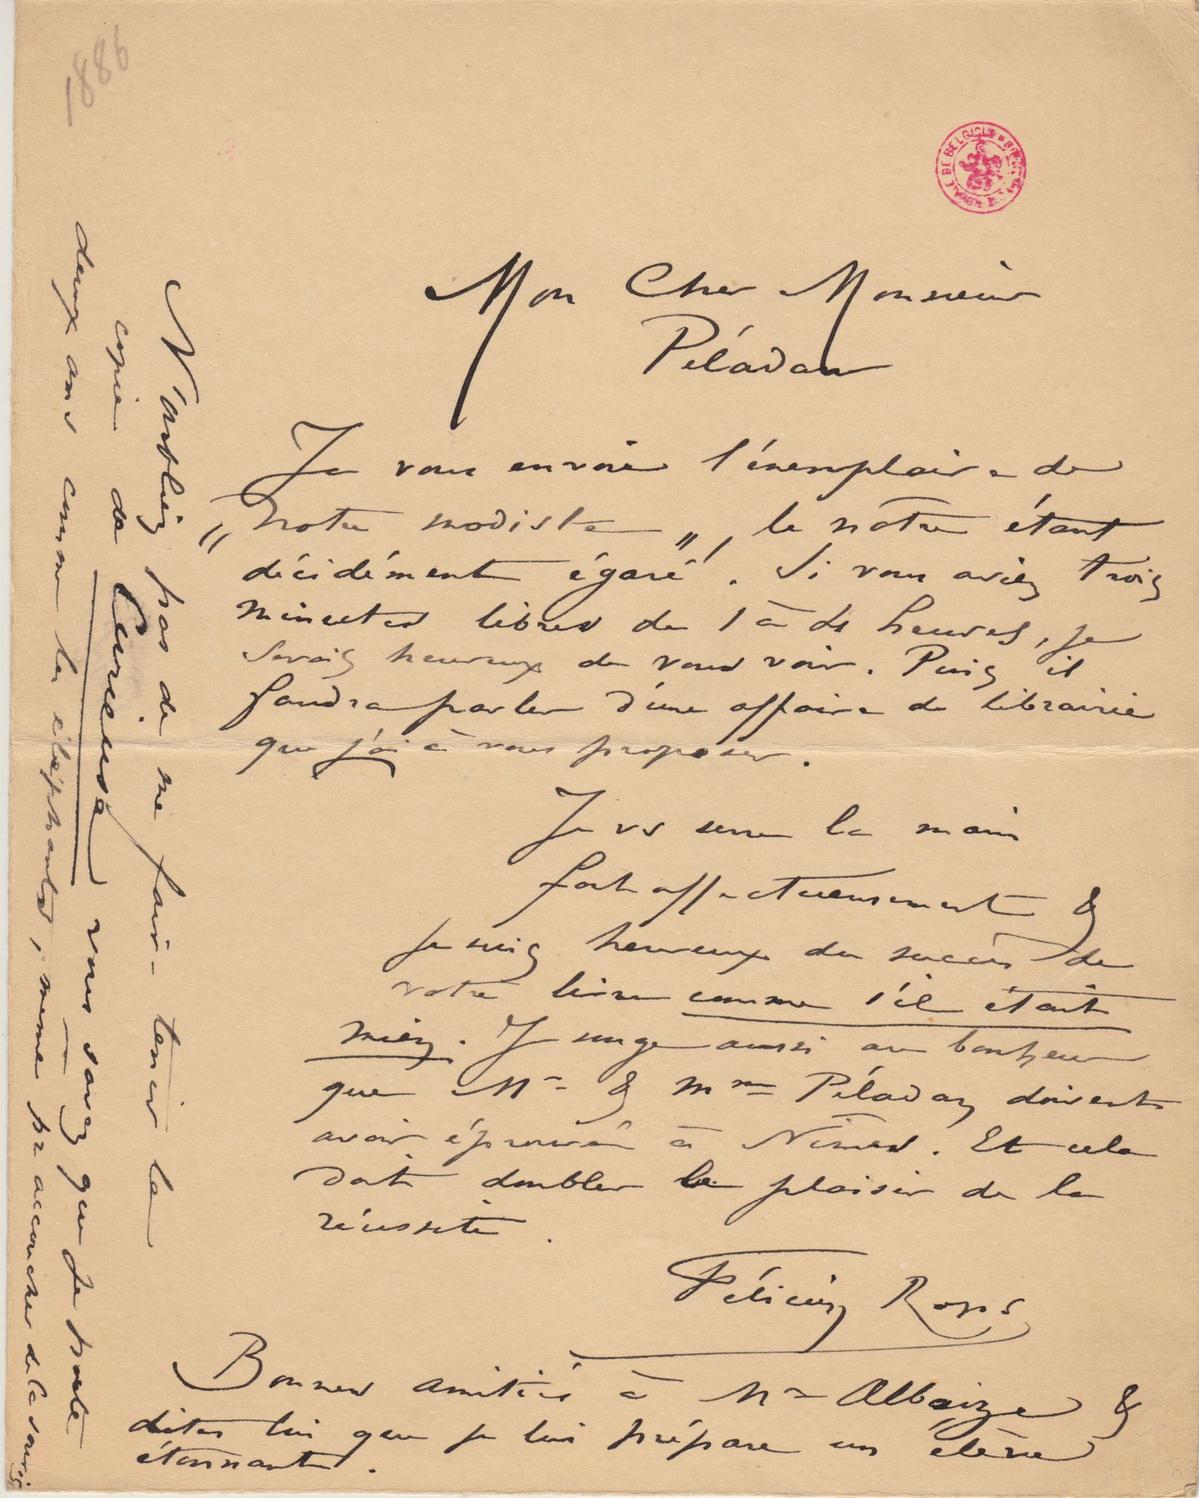 1886
BIBLIOTHÈQUE ROYALE DE BELGIQUE
Mon Cher Monsieur
Péladan
Je vous envoie l'éxemplaire de
"notre modiste", le nôtre étant
décidément égaré. Si vous aviez trois
minutes libres de 1 à 4 heures, je
serais heureux de vous voir. Puis il
faudra parler d'une affaire de librairie
que j'ai à vous proposer.
Je vs serre la main
fort affectueusement &
je suis heureux du succès de
votre livre comme s'il était
mien. Je songe aussi au bonheur
que Mr & Mme Péladan doivent
avoir éprouvé à Nîmes. Et cela
doit doubler le plaisir de la
réussite.
Félicien Rops
Bonnes amitiés à Mr Albaize &
dites lui que je lui prépare un élève
étonnant.
N'oubliez pas de me faire tenir la
copie de Curieuse vous savez que je porte
deux ans comme les éléphantes, même pr accoucher de la souris